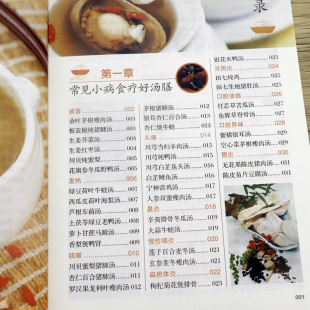 录
第一章
常见小病食疗好汤膳
感冒 002
桑叶茅根瘦肉汤 003
板蓝根炖猪肺汤 003
生姜芥菜汤 004
生姜红枣汤 004
川贝炖蜜梨 005
花旗参冬瓜野鸭汤 005
发热 006
绿豆荷叶牛蛙汤 007
西瓜皮荷叶海蜇汤 007
芦根车前汤 008
土茯苓绿豆老鸭汤 008
萝卜甘蔗马蹄汤 009
香梨煲鸭胃 009
咳嗽 010
川贝蜜梨猪肺汤 011
杏仁百合猪肺汤 011
罗汉果龙利叶瘦肉汤 012
茅根猪肺汤 012
银耳杏仁百合汤 013
杏仁煲牛蛙 013
头痛 014
川芎当归羊肉汤 015
川芎炖鸭汤 015
川芎白芷鱼头汤 016
白芷鲫鱼汤 016
宁神鸡汤 017
人参双蜜瘦肉汤 017
鼻炎 018
辛夷猪骨冬瓜汤 019
大蒜牛蛙汤 019
慢性咽炎 020
莲子百合麦冬汤 021
玄参麦冬瘦肉汤 021
扁桃体炎 022
枸杞菊花煲排骨 023
银花水鸭汤 023
牙周炎 024
田七炖鸡 025
田七生地猪肚汤 025
口腔溃疡 026
灯芯草苦瓜汤 027
鱼腥草脊骨汤 027
口腔异味 028
蜜糖银耳汤 029
空心菜荠根瘦肉汤 029
胃炎 030
无花果陈皮猪肉汤 031
陈皮鱼片豆腐汤 031
001